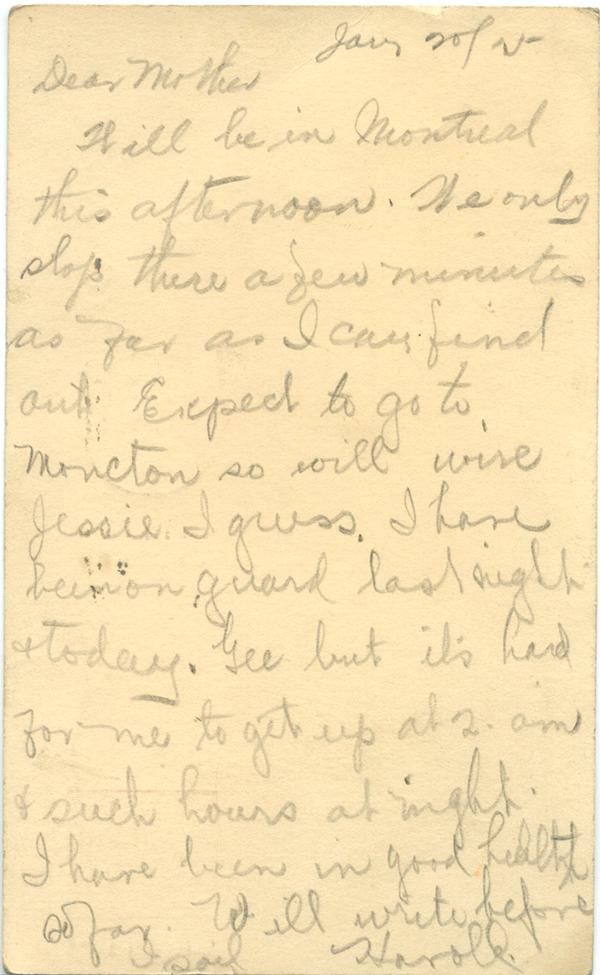 Jan 20/
Dear Mother
Will be in Montreal
this afternoon. We only
stop there a few minutes
as far as I can find
out. Expect to go to
Moncton so will wire
Jessie I guess. I have
been on guard last night
& today. Gee but it's hard
for me to get up at 2. am
& such hours at night.
I have been in good health
so far. Will write before
I sail Harold.